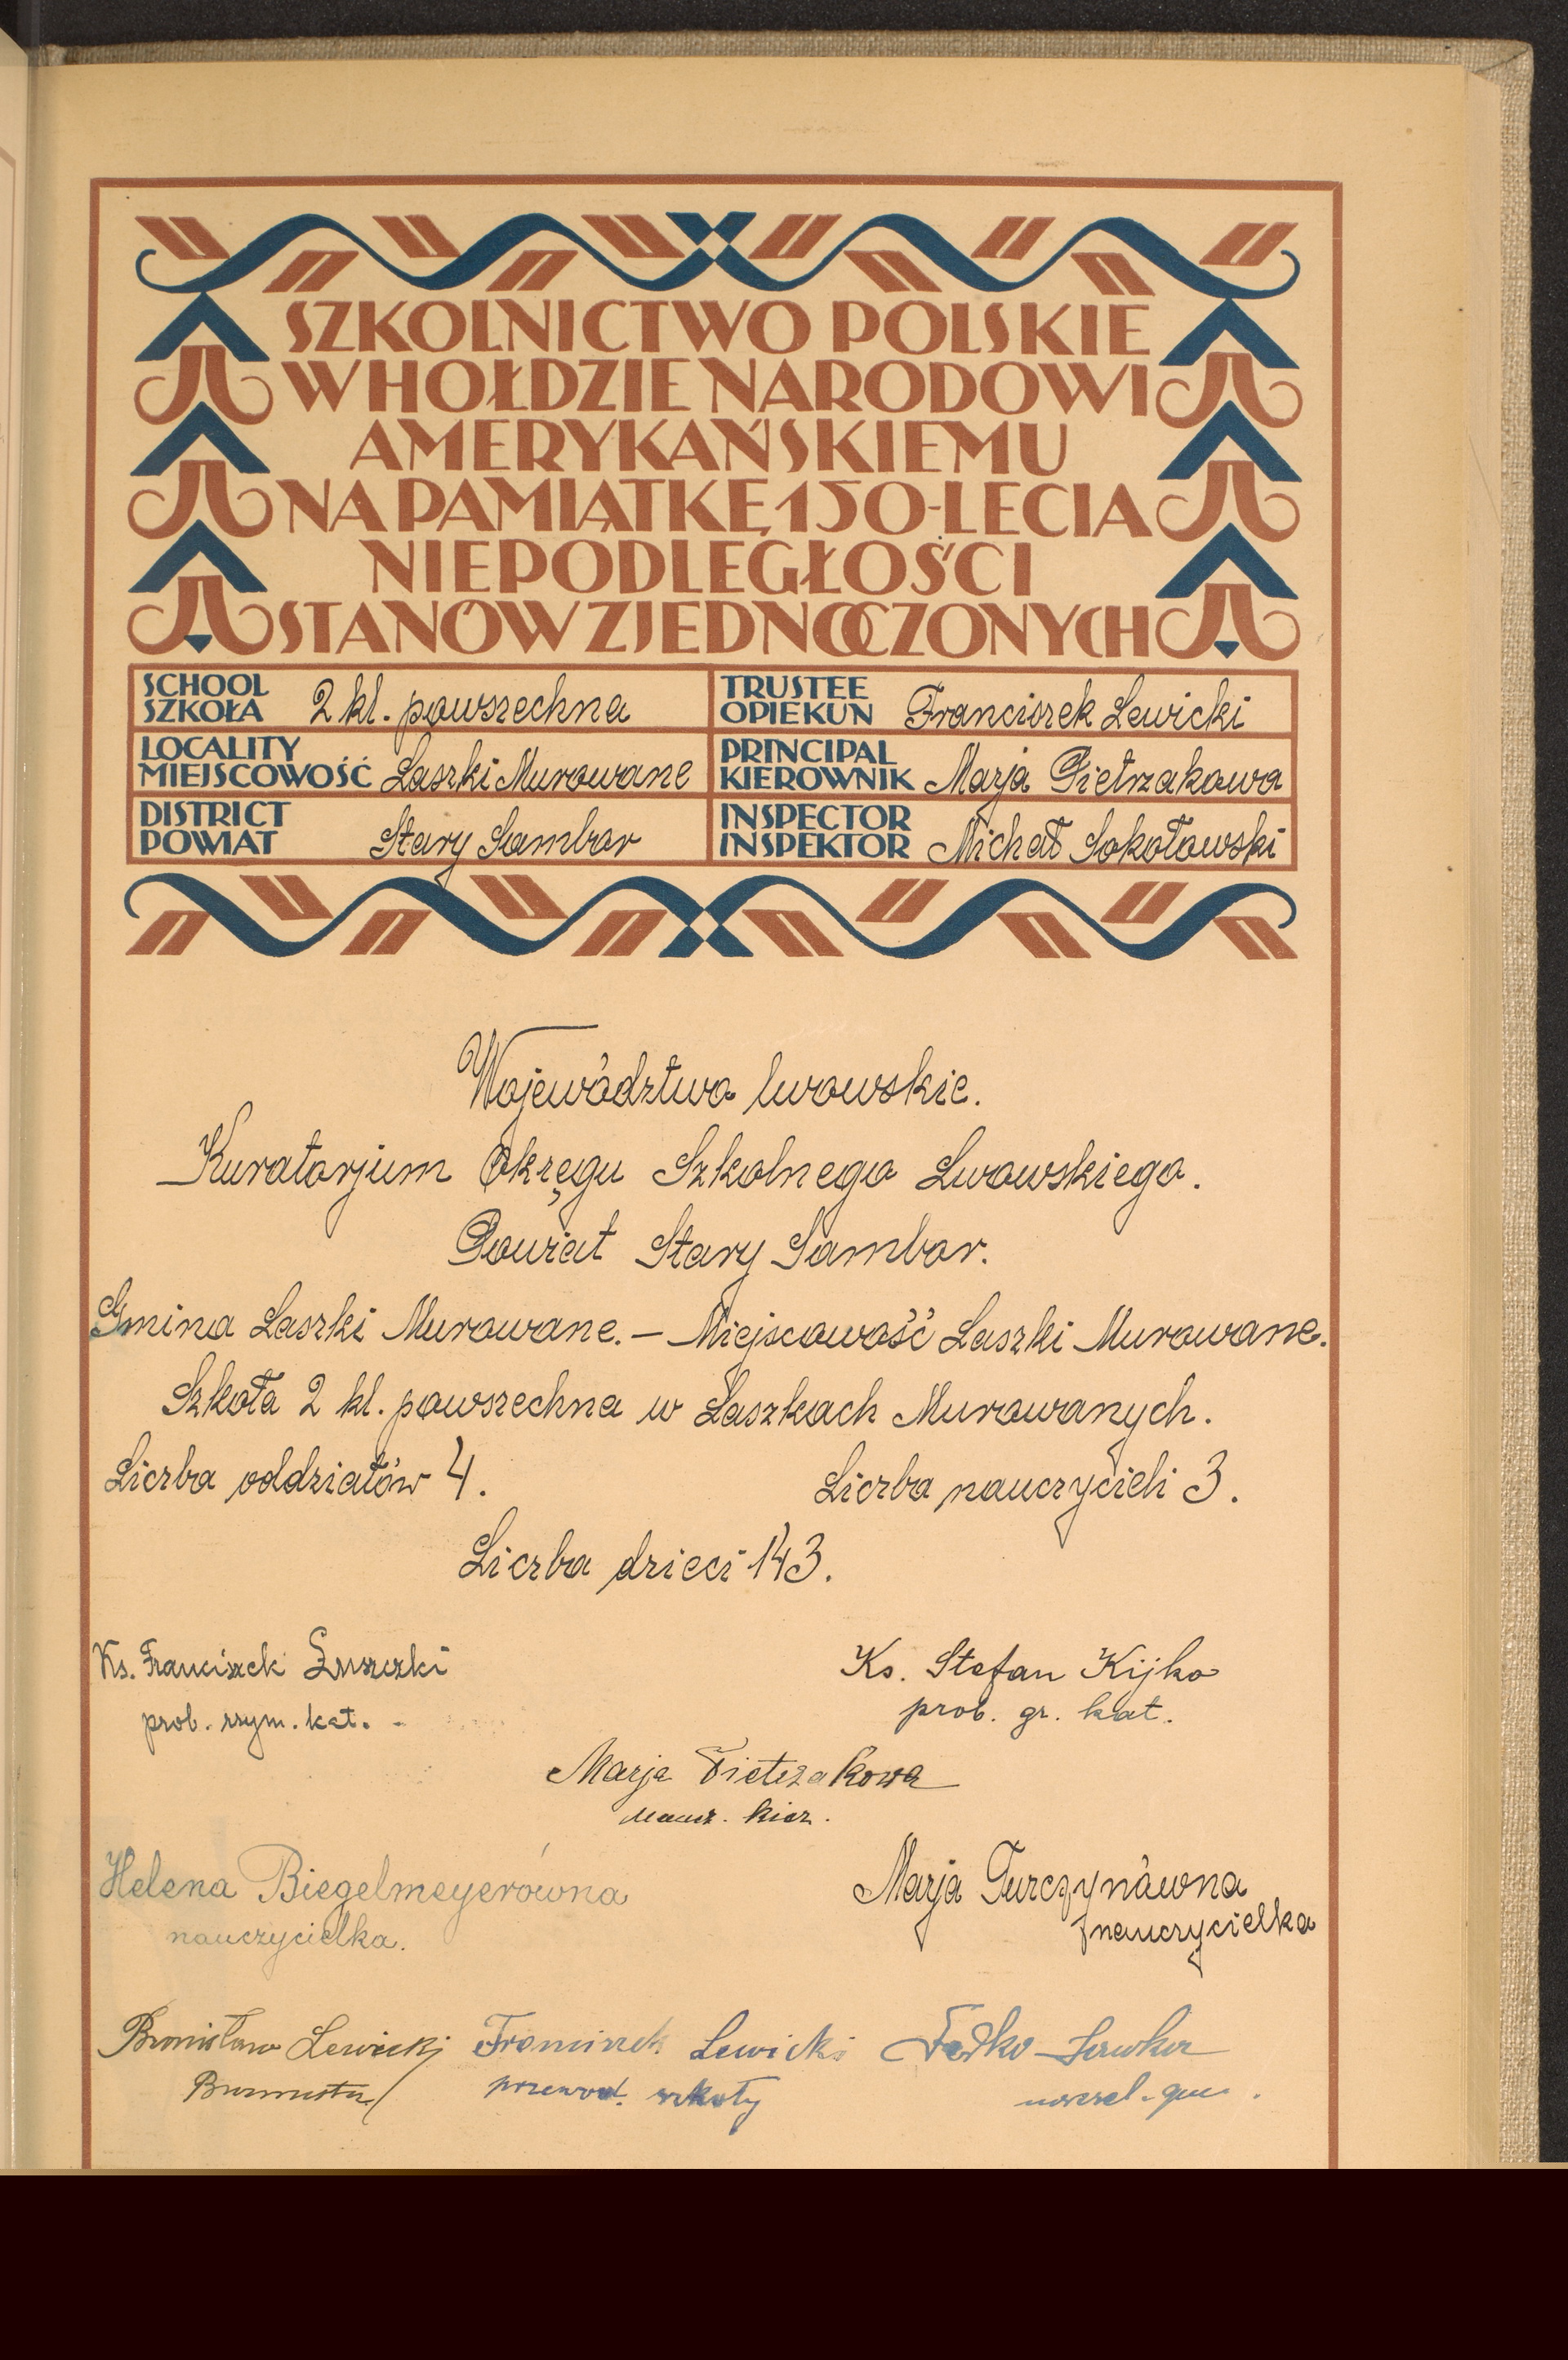 SZKOLNICTWO POLSKIE
W HOŁDZIE NARODOWI
AMERYKAŃSKIEMU
NA PAMIĄTKĘ 150-LECIA
NIEPODLEGŁOŚCI
STANÓW ZJEDNOCZONYCH
SCHOOL
SZKOŁA 2 kl. powszechna
TRUSTEE
OPIEKUN Franciszek Lewicki
LOCALITY
MIEJSCOWOŚĆ Laszki Murowane
PRINCIPAL
KIEROWNIK Marja Pietrzakowa
DISTRICT
POWIAT Stary Sambor
INSPECTOR
INSPEKTOR Michał Sokołowski
Województwo lwowskie.
Kuratorjum Okręgu Szkolnego Lwowskiego.
Powiat Stary Sambor.
Gmina Laszki Murowane. — Miejscowość Laszki Murowane.
Szkoła 2 kl. powszechna w Laszkach Murowanych.
Liczba oddziałów 4. Liczba nauczycieli 3.
Liczba dzieci 143.
Ks. Franciszek Ks. Stefan Kijko
prob. rzym. kat. prob. gr. kat.
Marja Pietrzakowa
naucz. kier.
Helena Biegelmeyerówna
nauczycielka.
Marja Turczynówna
nauczycielka
Bronisław Lewicki Franciszek Lewicki Fedko
Burmistrz przewod. szkoły